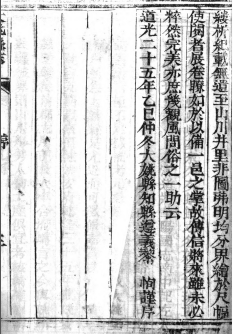 縷析紀載無遺至山川井里非圖弗明均分界繪於尺幅
使閱者展卷瞭如於以備一邑之掌故傳信將來雖未必
粹然完美亦庶幾觀風問俗之一助云
道光二十五年乙巳仲冬大姚縣知縣遵義黎 恂謹序
序